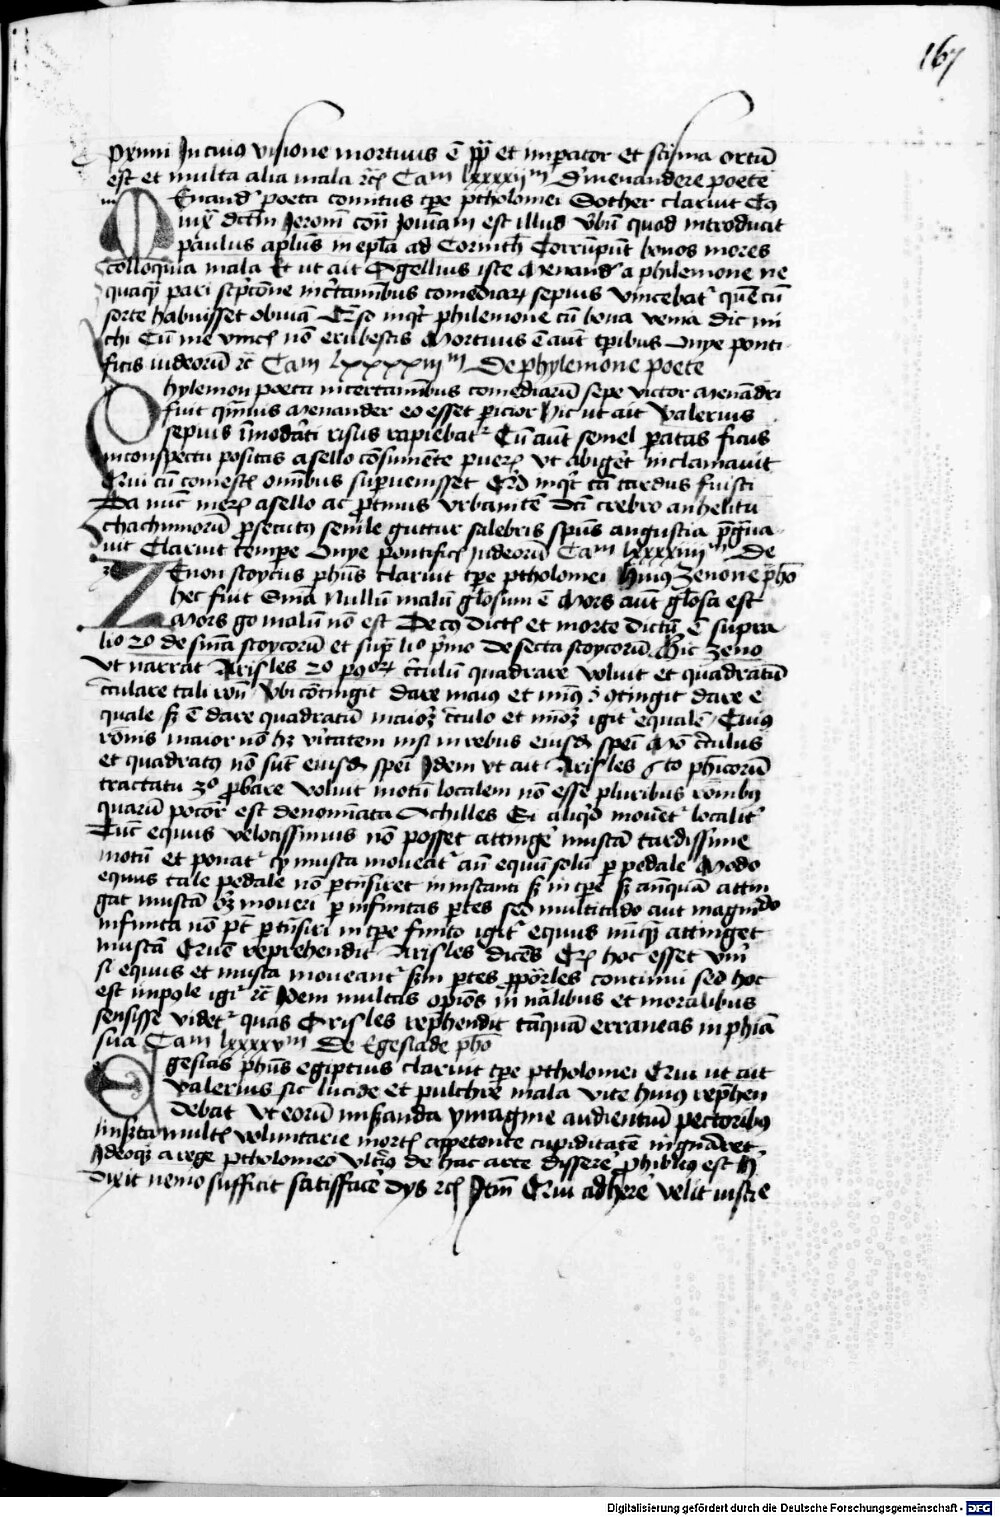 167
pximi In cuius visione mortuus ē pp̄ et imperator et scisma ortū
est et multa alia mala rc̄ Cam lxxxxijm De menandere poete
Enand' poeta comicus tpe ptholomei Sother claruit Cuius
iux̄ dictū Jeronī con̄ Jouianū est illud vbū quod introducit
paulus aplūs in epla ad Corinth Corrūpūt bonos mores
colloquia mala Et ut ait Agellius iste Menand' a philemone ne
quaqȝ pari scptōne in certaībus comediaꝝ sepius vincebat' quē cū
forte habuisset obuiā Queso inqt philemone cū bona venia dic mi
chi Cū me vincis nō erubescis Mortuus ē aūt tpibus Onye ponti
ficis iudeorū rc̄ Cam lxxxxiijm De phylemone poete
hylemon poeta in certaminibus comediarū sepe victor Menādri
fuit quāuis Menander eo esset pericior Hic ut ait Valerius
sepius īmodāti risus rapiebat' Cū aūt semel paratas ficus
in conspectu positas asello cōsumēte puerū vt abiget inclamauit
Qui cū comestis omībus supuenisset Qid inqt tā tardus fuisti
Da nūc merū asello ac protinus vrbanitatē dcī crebro anhelitu
chachinnorū psecutus senile guttur salebris spūs angustia pgraua
uit Claruit tempe Onye pontificis iudeorū Cam lxxxxiiijm De
Enon stoycus phūs claruit tpe ptholomei Huius zenone pho
hec fuit sniā Nullū malū gl̄osum ē Mors aūt gl̄osa est
Mors go malū non est De eius dictis et morte dictū ē supra
lio 2o de sniā stoycorū et supra lio pmo De secta stoycorū Hic zeno
vt narrat Aristiles 2o pōꝝ circulū quadrare voluit et quadratū
circulare tali rōne Vbi cōtingit dare maius et minus ibi cōtingit dare e
quale sȝ ē dare quadratū maiorē circulo et minorē igit' equalē Cuius
rōnis maior nō hȝ vitatem nisi in rebus eiusdē spēi Mō circulus
et quadratus nō sūt eiusdē spēi Idem vt ait Aristiles 6to phicorū
tractatu 3o pbare voluit motū localem nō esse pluribus rōnibus
quarū pōcior est denomīata Achilles Si aliqid mouet' localit'
Tūc equus velocissimus nō posset attingere muscā tardissime
motū et ponat' qȝ musca moueat' añ equū solū p pedale Modo
equus tale pedale nō ptransiret in instanti sȝ in tpe sȝ antequā attin
gat muscā oȝ moueri p infinitas ptes sed multitudo aut magnitudo
infinita nō pōt ptransiri in tpe finito igit' equus nūqȝ attinget
muscā Quē reprehendit Aristiles dicēs Qd hoc esset verū
si equus et musca moueant' scdm ptes pporcōales continui sed hoc
est impōle igit' rc̄ Idem multas opiōes in nālibus et moralibus
sensisse videt' quas Aristiles rephendit tāquā erraneas in phia
sua Cam lxxxxvm De Egesiade pho
gesias phūs egiptius claruit tpe ptholomei Qui ut ait
Valerius sic lucide et pulchre mala vite huius rephen
debat vt eorū miseranda ymagine audientiū pectoribus
inserta multis voluntarie mortis appetende cupiditatē ingnāret
Ideoqȝ a rege ptholomeo vlterius de hac arte disserere phibitus est H'
dixit nemo sufficit satisffacere dys rc̄ Item Qui adherere velit iuste
Digitalisierung gefördert durch die Deutsche Forschungsgemeinschaft - DFG